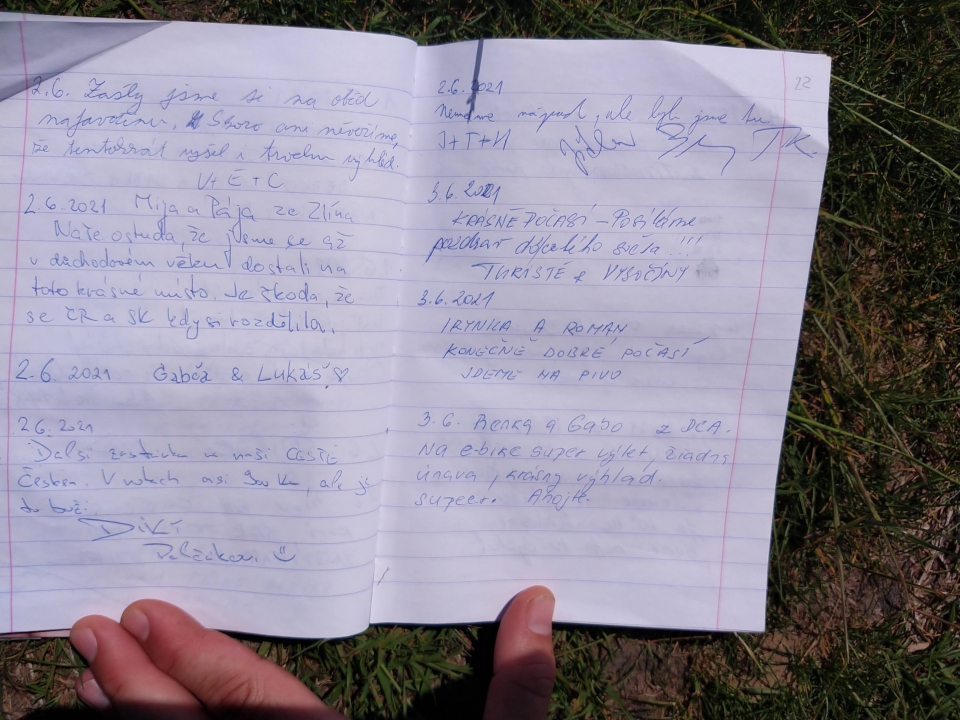 2.6. Zašly jsme si na oběd
na Javořinu. Skoro ani nevěříme,
že tentokrát vyšel i trochu výhled.
V+E+C
2.6.2021 Mija a Pája ze Zlína
Naše ostuda, že jsme se až
v důchodovém věku dostali na
toto krásné místo. Je škoda, že
se ČR a SK kdysi rozdělila.
2.6 2021 Gabča & Lukáš ♡
2.6.2021
Další zastávka na naší CESTĚ
Českem. V nohách asi km, ale je
to boží.
DIKÍ
☺
22
2.6.2021
Nemáme nápad, ale byli jsme tu.
J+T+H
JK.
3.6.2021
KRÁSNÉ POČASÍ – Posíláme
pozdrav do celého světa !!!
TURISTÉ z VYSOČINY
3.6.2021
IRYNKA A ROMAN
KONEČNĚ DOBRÉ POČASÍ
JDEME NA PIVO
3.6. Renka a Gabo z DCA.
Na e-bike super výlet, žiadna
únava, krásny výhlad.
supeer. Ahojte.